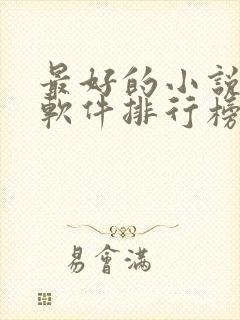 最好的小說
軟件排行榜
易會滿